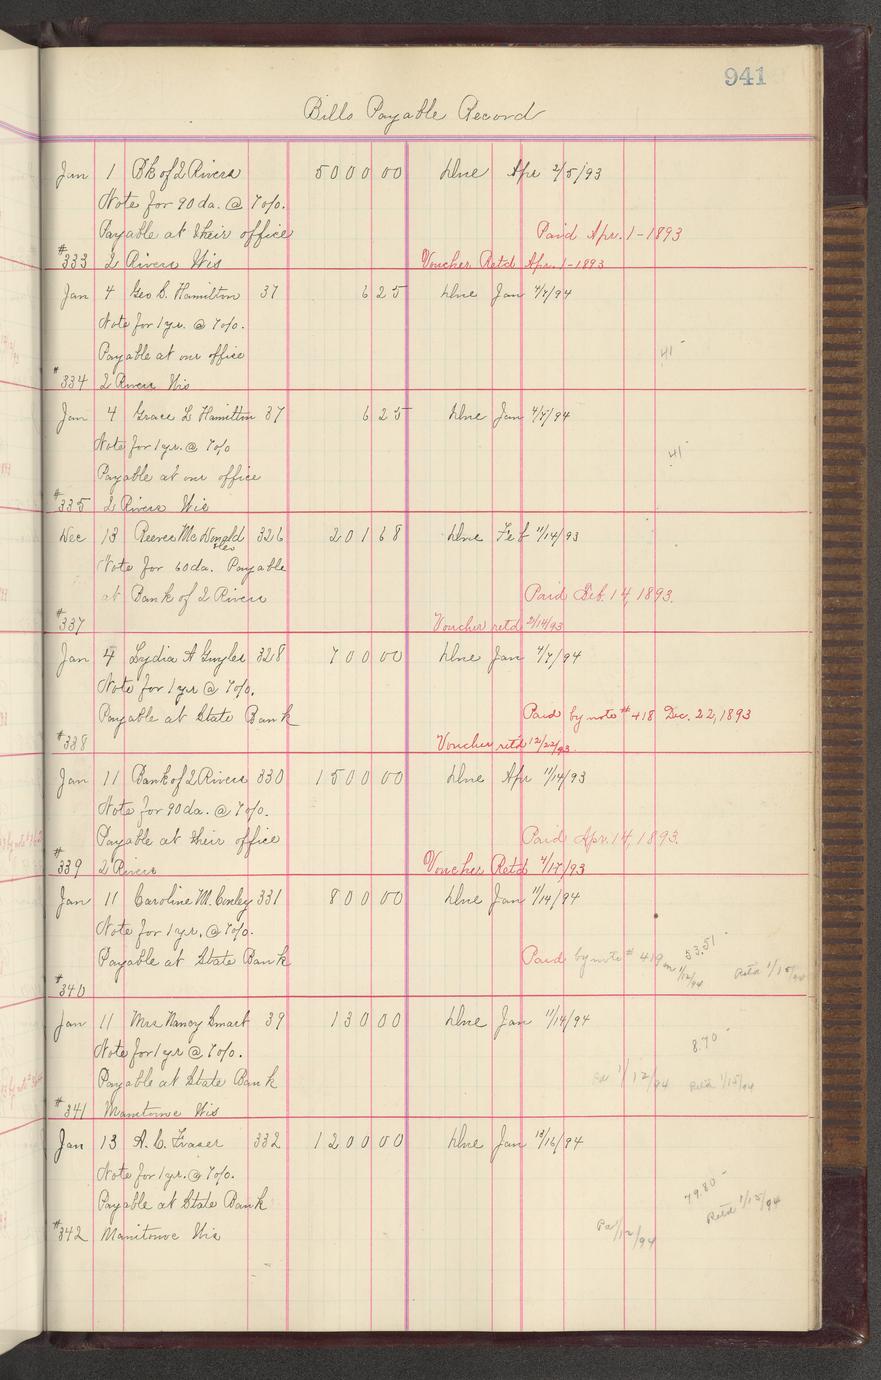 941
Bills Payable Record
Jan 1 Bk of 2 Rivers 5000 00 Due Apr 2/5/93
Note for 90 da. @ 7%.
Payable at their office Paid Apr. 1-1893
#333 2 Rivers Wis Voucher Retd Apr. 1-1893
Jan 4 Geo B. Hamilton 37 6 25 Due Jan 4/7/94
Note for 1 yr. @ 7%.
Payable at our office 41
#334 2 Rivers Wis
Jan 4 Grace L Hamilton 37 6 25 Due Jan 4/7/94
Note for 1 yr. @ 7%
Payable at our office 41
#335 2 Rivers Wis
Dec 13 Reeves McDonald 326 201 68 Due Feb 11/14/93
Note for 60 da. Payable
at Bank of 2 Rivers Paid Feb. 14, 1893.
#337 Voucher retd 2/14/93
Jan 4 Lydia A 328 700 00 Due Jan 4/7/94
Note for 1 yr @ 7%.
Payable at State Bank Paid by note #418 Dec. 22, 1893
#338 Voucher retd 12/22/93.
Jan 11 Bank of 2 Rivers 330 1500 00 Due Apr 11/14/93
Note for 90 da. @ 7%.
Payable at their office Paid Apr. 14, 1893.
#339 2 Rivers Voucher Retd 4/17/93
Jan 11 Caroline M. Conley 331 800 00 Due Jan 11/14/94
Note for 1 yr. @ 7%. 53.51
Payable at State Bank Paid by note #419 on 1/12/94 Retd 1/15/94
#340
Jan 11 Mrs Nancy Smart 39 130 00 Due Jan 11/14/94
Note for 1 yr @ 7%. 8.70
Payable at State Bank Pd 1/12/94 Retd 1/15/94
#341 Manitowoc Wis
Jan 13 A. C. Fraser 332 1200 00 Due Jan 13/16/94
Note for 1 yr. @ 7%. 79.80
Payable at State Bank Retd 1/15/94
#342 Manitowoc Wis Pd 1/12/94